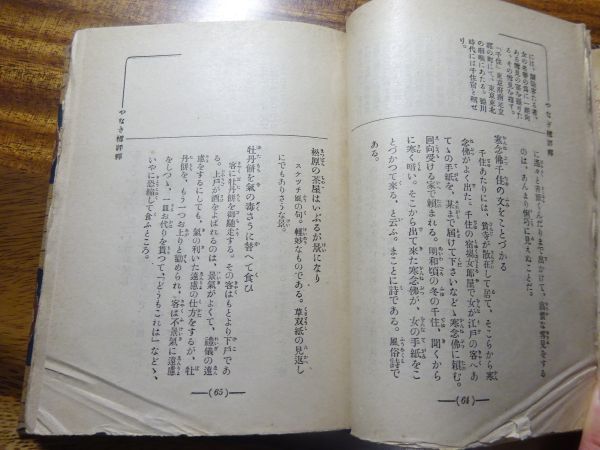 には、讀詠客たる者、
女の名譽の爲に一趣向
ある雪見の宿を借りた
る。その雪見を殘す。
「千住」東京府南足立
郡の町にて、東京東北
の咽喉にあたる。德川
時代には千住宿と稱せ
り。
やなぎ樽評釋
に遙々吉原くんだりまで出かけて、富貴な雪見をする
のは、あんまり悧巧に見へぬことだ。
寒念佛千住の文をことづかる
千住あたりには、貧寺が散在して居て、そこらから寒
念佛がよく出た。千住の宿場女郎屋で女が江戸の客へあ
てゝの手紙を、某まで屆けて下さいなどゝ寒念佛に賴む。
回向受ける家で賴まれる。明和頃の冬の千住、聞くから
に寒く暗い。そこから出て來た寒念佛が、女の手紙をこ
とづかつて來る、と云ふ。まことに詩である。風俗詩で
ある。
(64)
松原の茶屋はいぶるが景になり
スケツチ風の句。輕妙なものである。草双紙の見返し
にでもありさうな景。
牡丹餅を氣の毒さうに替へて食ひ
客に牡丹餅を御馳走する。その客はもとより下戸であ
る。上戸が酒をよばれるのは、景氣がよくて、禮儀の遠
慮をするにしても、氣の利いた遠慮の仕方をするが、牡
丹餅を、もう一つお上りと勸められ、客は不景氣に遠慮
をしつゝ、一皿お代りを貰つて「どうもこれは」などゝ、
いやに恐縮して食ふところ。
やなぎ樽評釋
(65)